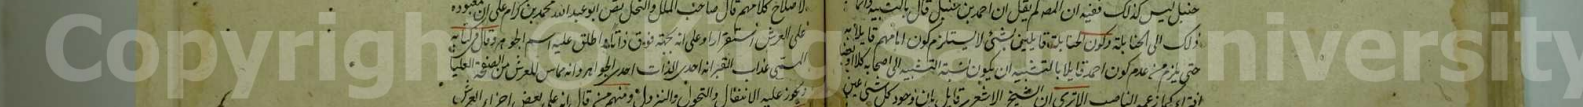 حنبل ليس كذلك ففيه ان المص لم يقل ان احمد بن حنبل قال بالتشبيه وانما
ذلك الى الحنابلة وكون الحنابلة قايلين بشئ لا يستلزم كون امامهم قايلا به
حتى يلزم من عدم كون احمد قايلا بالتشبيه ان يكون نسبة التشبيه الى اصحابه كلا او بعضا
افتراء كما زعمه الناصب الا ترى ان الشيخ الاشعري قايل بان وجود كل شئ عين
لاصلاح كلامهم قال صاحب الملل والنحل نص ابو عبد الله محمد بن كرام على ان معبوده
على العرش استقرارا وعلى انه بجهة فوق ذاتا واطلق عليه اسم الجوهر وقال في كتابه
المسمى عذاب القبر انه احدي الذات احدي الجوهر وانه مماس للعرش من الصفحة العليا
ويجوز عليه الانتقال والتحول والنزول ومنهم من قال انه على بعض اجزاء العرش
Copyright niversity